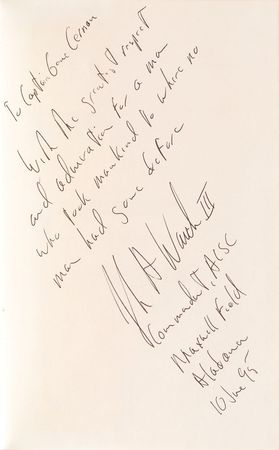 To Captain Gene Cernan
With the greatest respect
and admiration for a man
who took mankind to where no
man had gone before
John A Warden III
Commandant, ACSC
Maxwell Field
Alabama
10 June 95